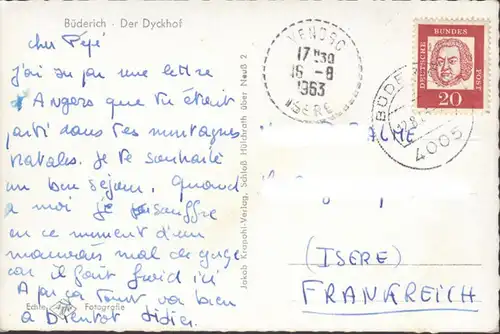 Büderich - Der Dyckhof
cher Pépé
j'ai su par une lettre
d'Angers que tu était
parti dans tes montagnes
natales. Je te souhaite
un bon séjour. Quand
a moi je souffre
en ce moment d'un
mauvais mal de gorge
car il fait froid ici
A part ça tout va bien
à Bientot Didier
Echte Fotografie
Jakob Krapohl-Verlag, Schloß Hülchrath über Neuß 2
17 H 30
16 - 8
1963
ISERE
DEUTSCHE BUNDESPOST
20
BÜDE
4005
(ISERE)
FRANKREICH